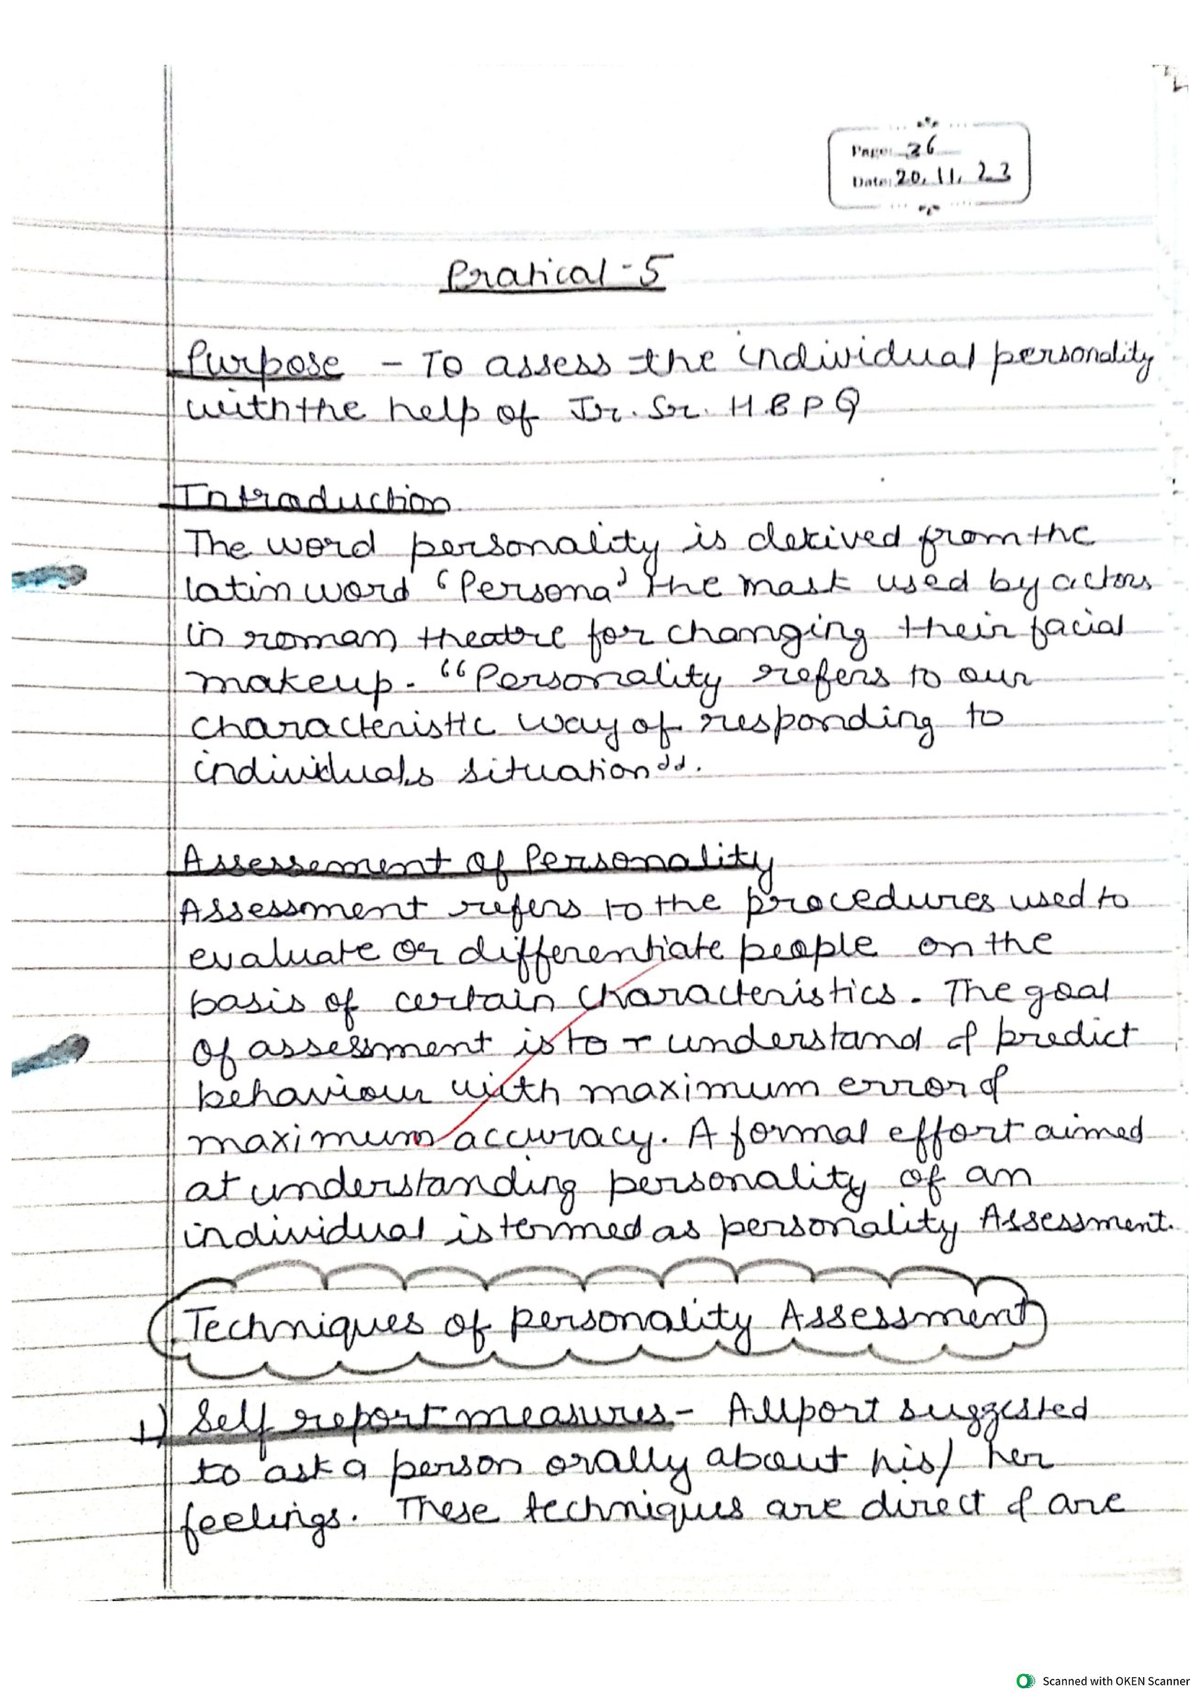 Page: 36
Date: 20, 11, 23
Pratical - 5
Purpose - To assess the individual personality
with the help of Jr. Sr. H B P Q
Intraduction
The word personality is derived from the
latin word 'Persona' the mask used by actors
in roman theatre for changing their facial
makeup. "Personality refers to our
characteristic way of responding to
individuals situation".
Assessement of Personality
Assessment refers to the procedures used to
evaluate or differentiate people on the
basis of certain characteristics. The goal
of assessment is to understand & predict
behaviour with maximum error &
maximum accuracy. A formal effort aimed
at understanding personality of an
individual is termed as personality Assessment.
Techniques of personality Assessment
1) Self report measures - Allport suggested
to ask a person orally about his/ her
feelings. These techniques are direct & are
Scanned with OKEN Scanner